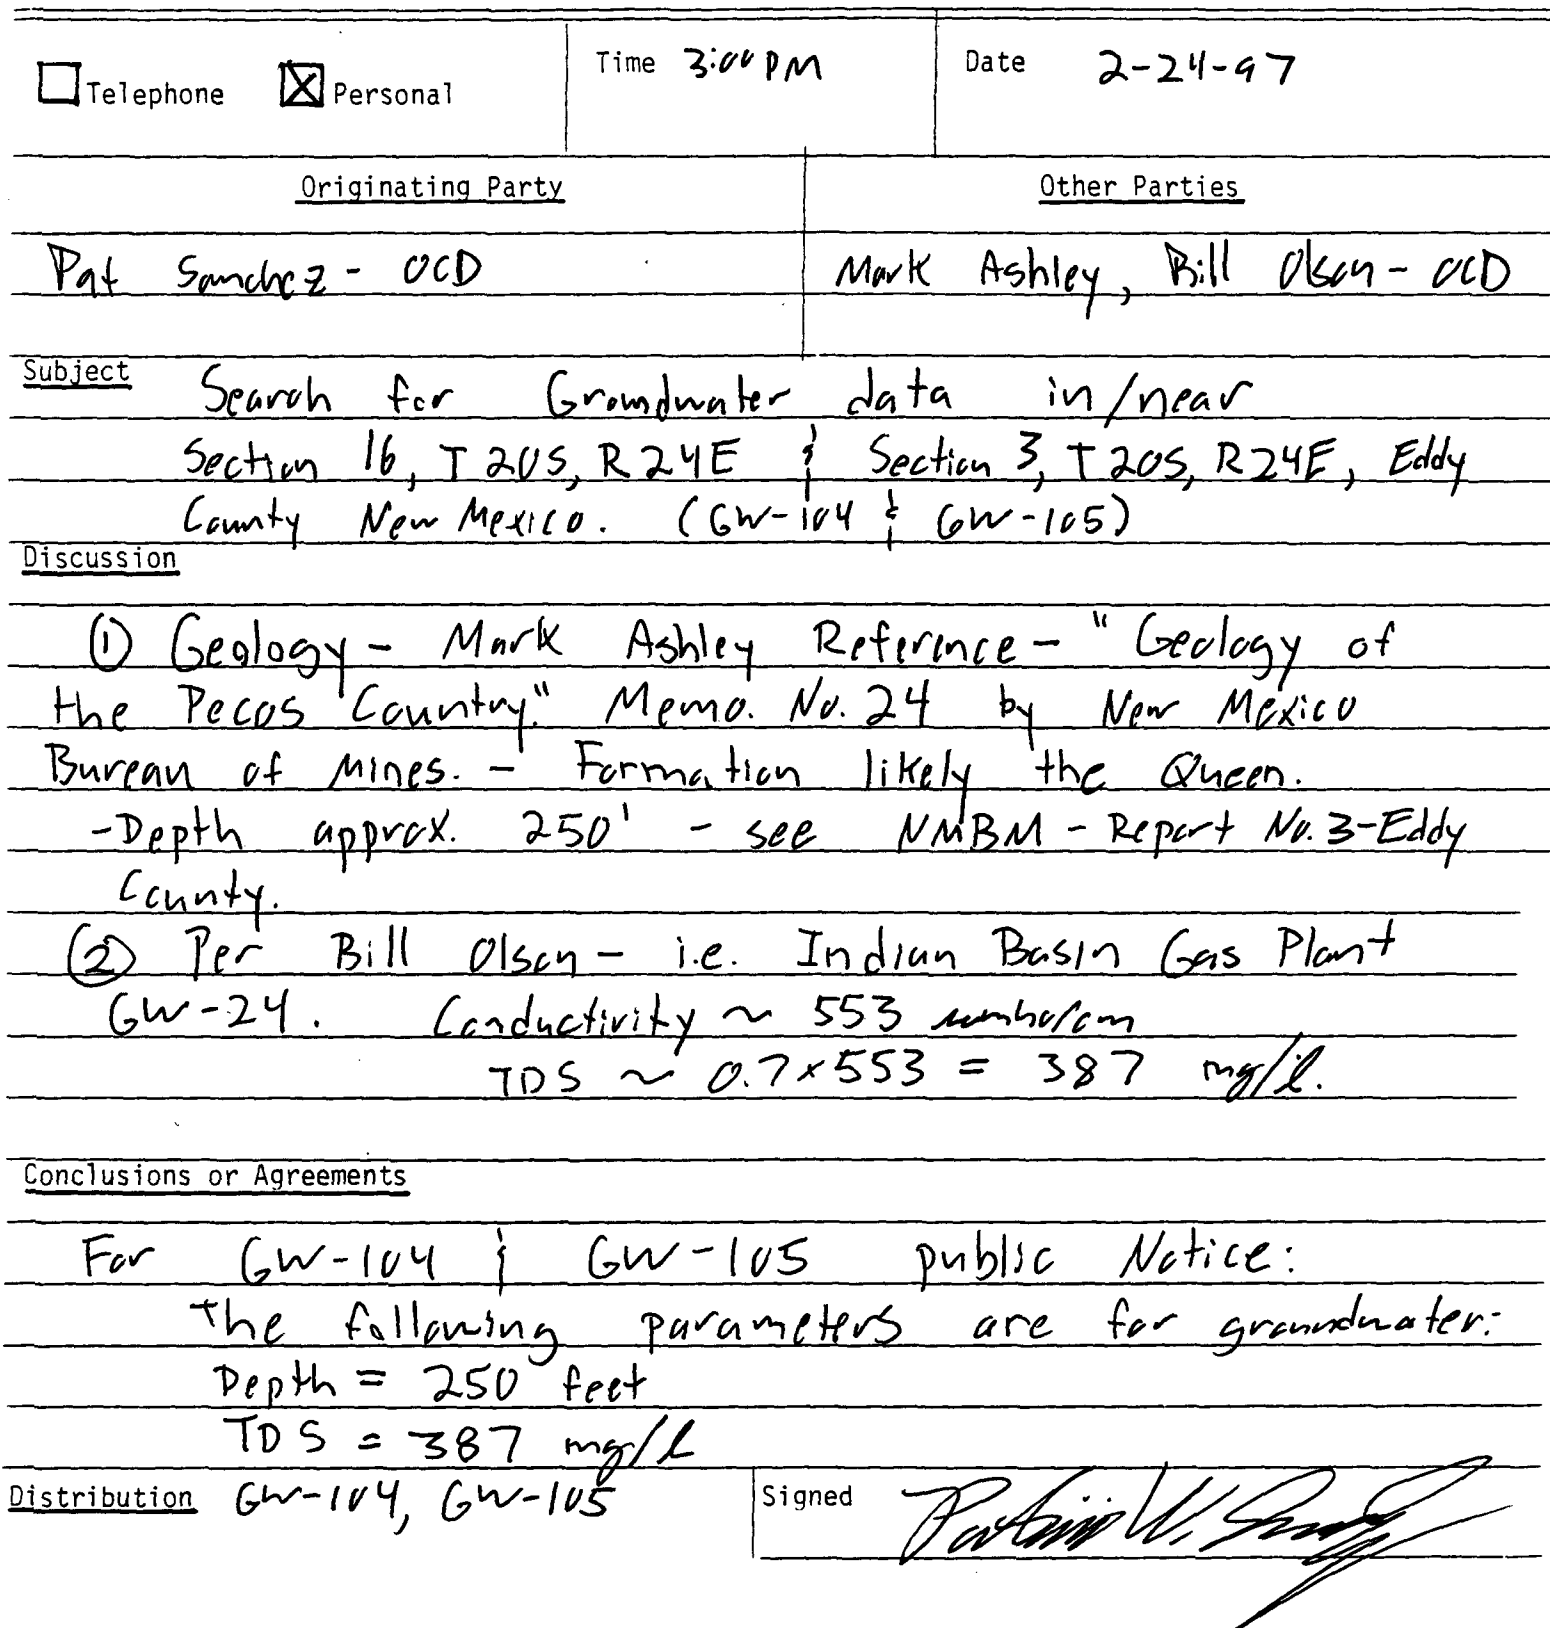 Telephone Personal Time 3:00 PM Date 2-24-97
Originating Party Other Parties
Pat Sanchez - OCD Mark Ashley, Bill Olson - OCD
Subject Search for Groundwater data in/near
Section 16, T20S, R24E & Section 3, T20S, R24E, Eddy
County New Mexico. (GW-104 & GW-105)
Discussion
① Geology - Mark Ashley Reference - "Geology of
the Pecos Country." Memo. No. 24 by New Mexico
Bureau of Mines. - Formation likely the Queen.
-Depth approx. 250' - see NMBM - Report No. 3-Eddy
County.
② Per Bill Olson - i.e. Indian Basin Gas Plant
GW-24. Conductivity ~ 553
TDS ~ 0.7×553 = 387 mg/l.
Conclusions or Agreements
For GW-104 & GW-105 public Notice:
The following parameters are for groundwater:
Depth = 250 feet
TDS = 387 mg/l
Distribution GW-104, GW-105 Signed